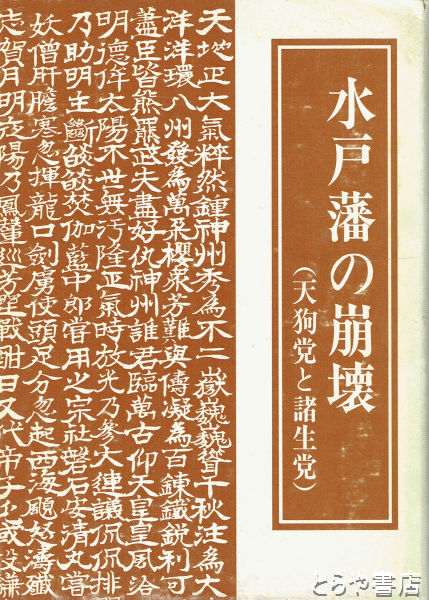 水戸藩の崩壊
(天狗党と諸生党)
天地正大氣粹然鍾神州秀為不二嶽巍巍聳千秋注為大
洋洋環八州發為萬朶櫻衆芳難與儔凝為百鍊鐵鋭利可
藎臣皆熊羆武夫盡好仇神州誰君臨萬古仰天皇皇風洽
明德侔太陽不世無汚隆正氣時放光乃參大連議侃侃排
乃助明主斷燄燄焚伽藍中郎嘗用之宗社磐石安清丸嘗
妖僧肝膽寒忽揮龍口劍虜使頭足分忽起西海颶怒濤殲
志賀月明夜陽乃鳳輦巡芳野戰酣日又代帝子屯或投鎌
とらや書店